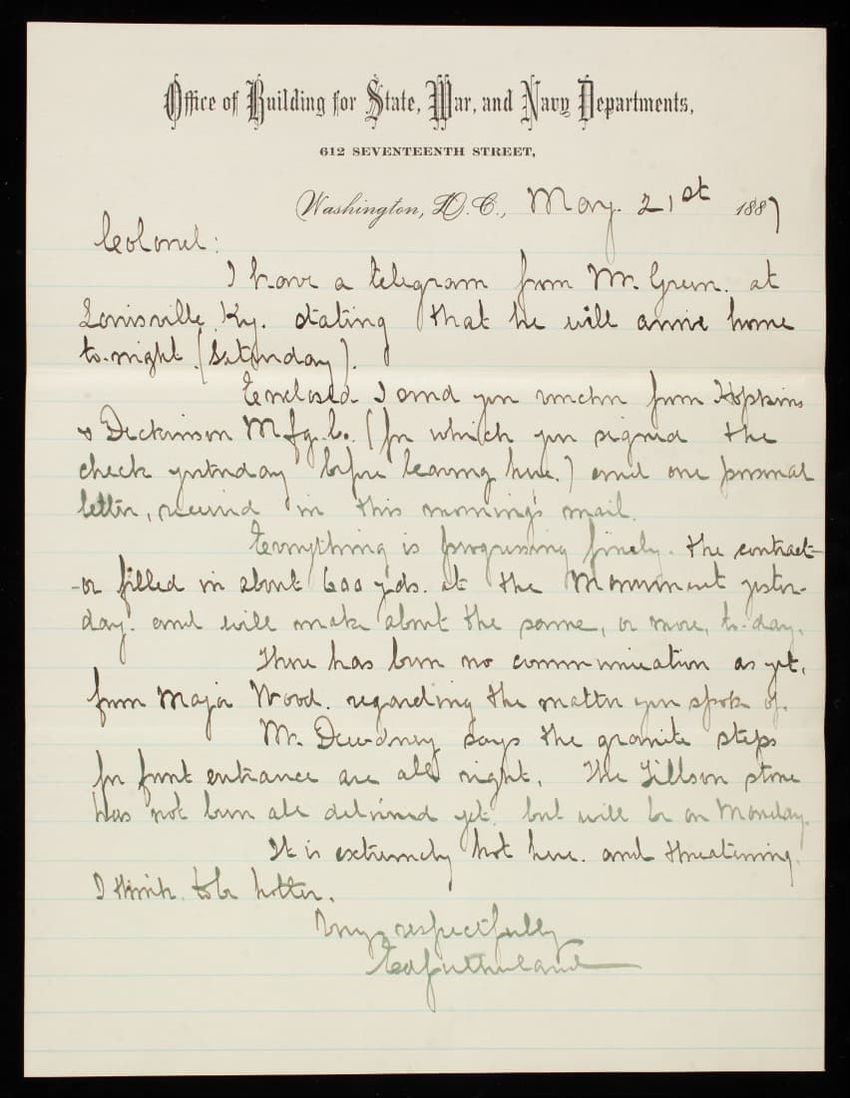 Office of Building for State, War, and Navy Departments,
612 SEVENTEENTH STREET,
Washington, D.C., May. 21st 1887
Colonel:
I have a telegram from Mr. Green. at
Louisville Ky. stating that he will arrive home
to-night (Saturday).
Enclosed I send you voucher from Hopkins
& Dickinson Mfg. Co. (for which you signed the
check yesterday before leaving here.) and one personal
letter, received in this morning's mail.
Everything is progressing finely. The contract-
-or filled in about 600 yds. at the Monument yester-
day. and will make about the same, or more, to-day.
There has been no communication as yet,
from Major Wood. regarding the matter you spoke of.
Mr. Dewdney says the granite steps
for front entrance are all right. The Tillson stone
has not been all delivered yet. but will be on Monday.
It is extremely hot here. and threatening,
I think to be hotter.
Very respectfully